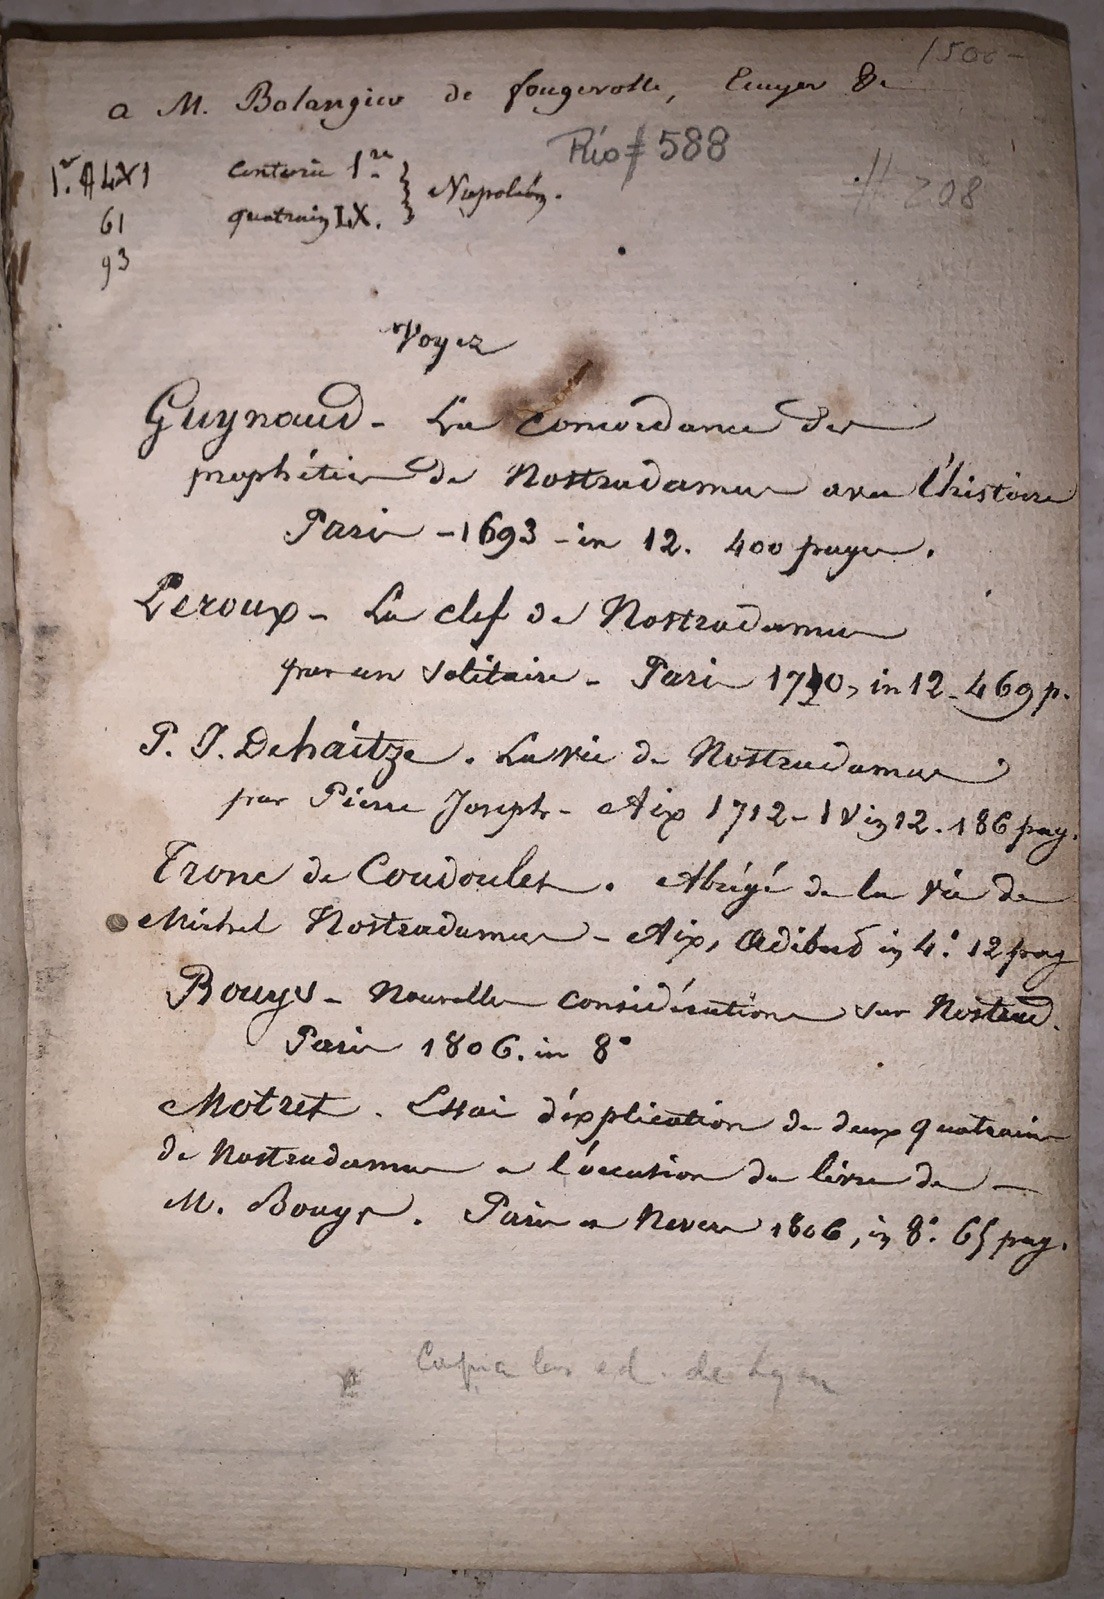 1500 -
a M. Balangier de fougerolle, Ecuyer &c
Rio # 588
# 208
1.r A LXI centurie 1re } Napoléon.
61 quatrain LX.
93
Voyez
Guynaud - La concordance des
prophéties de Nostradamus avec l'histoire
Paris - 1693 - in 12. 400 pages.
Leroux - La clef de Nostradamus
par un solitaire - Paris 1710, in 12 - 469 p.
P. J. Dehaitze. La vie de Nostradamus
par Pierre Joseph - Aix 1712 - 1 V in 12. 186 pag.
Tronc de Coudoulet. Abrégé de la vie de
Michel Nostradamus - Aix, Adibert in 4.° 12 pag
Bouys - Nouvelles considérations sur Nostrad.
Paris 1806. in 8°
Motret. Essai d'éxplication de deux quatrains
de Nostradamus a l'occasion du livre de -
M. Bouys. Paris et Nevers 1806, in 8.° 65 pag.
Copia les ed. de Lyon